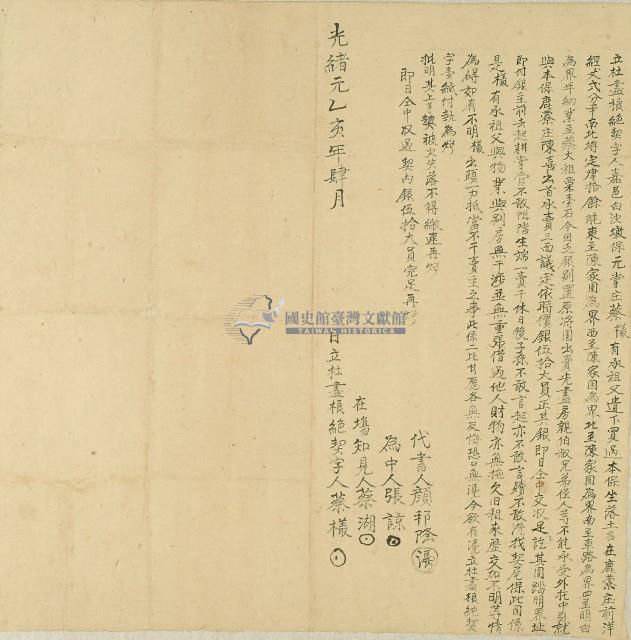 立杜盡根絕契字人嘉邑白沙墩保元掌庄蔡檨有承祖父遺下買過本保坐落土名在鹿藔庄前洋
經丈弍分半南北埒定肆拾餘 東至陳家園為界西至陳家園為界北至陳家園為界南至車路為界四至明白
為界年納業主蔡大租粟 石今因乏銀別置原將園出賣先盡房親伯叔兄弟侄人等不能承受外托中引就
與本保鹿藔庄陳喜出首承賣三面議定依時價銀伍拾大員正其銀即日仝中交收足訖其園踏明界址
即付銀主前去起耕掌管不敢阻擋生端一賣千休日後子孫不敢言起亦不敢言贖不敢 找契尾保此園係
是檨有承祖父與物業與別房無干涉並無重張借過他人財物亦無拖欠旧租來歷交加不明等情
為碍如有不明檨出頭一力抵當不干賣主之事此係二比甘愿各無反悔恐口無憑今欲有憑立杜盡根絕契
字壹紙付執為炤
批明其上手契被火失落不得繳連再炤
即日仝中收過契內銀伍拾大員完足再炤
代書人顏邦隆
為中人張諒
在塲知見人蔡湖
光緒元乙亥年肆月 日立杜盡根絕契字人蔡檨
國史館臺灣文獻館
TAIWAN HISTORICA